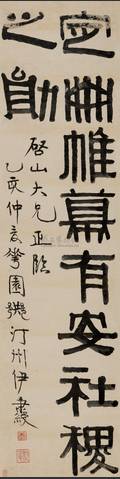 定冊帷幕有安社稷
之勛
啓山大兄正臨
乙亥仲園汀州伊秉綬